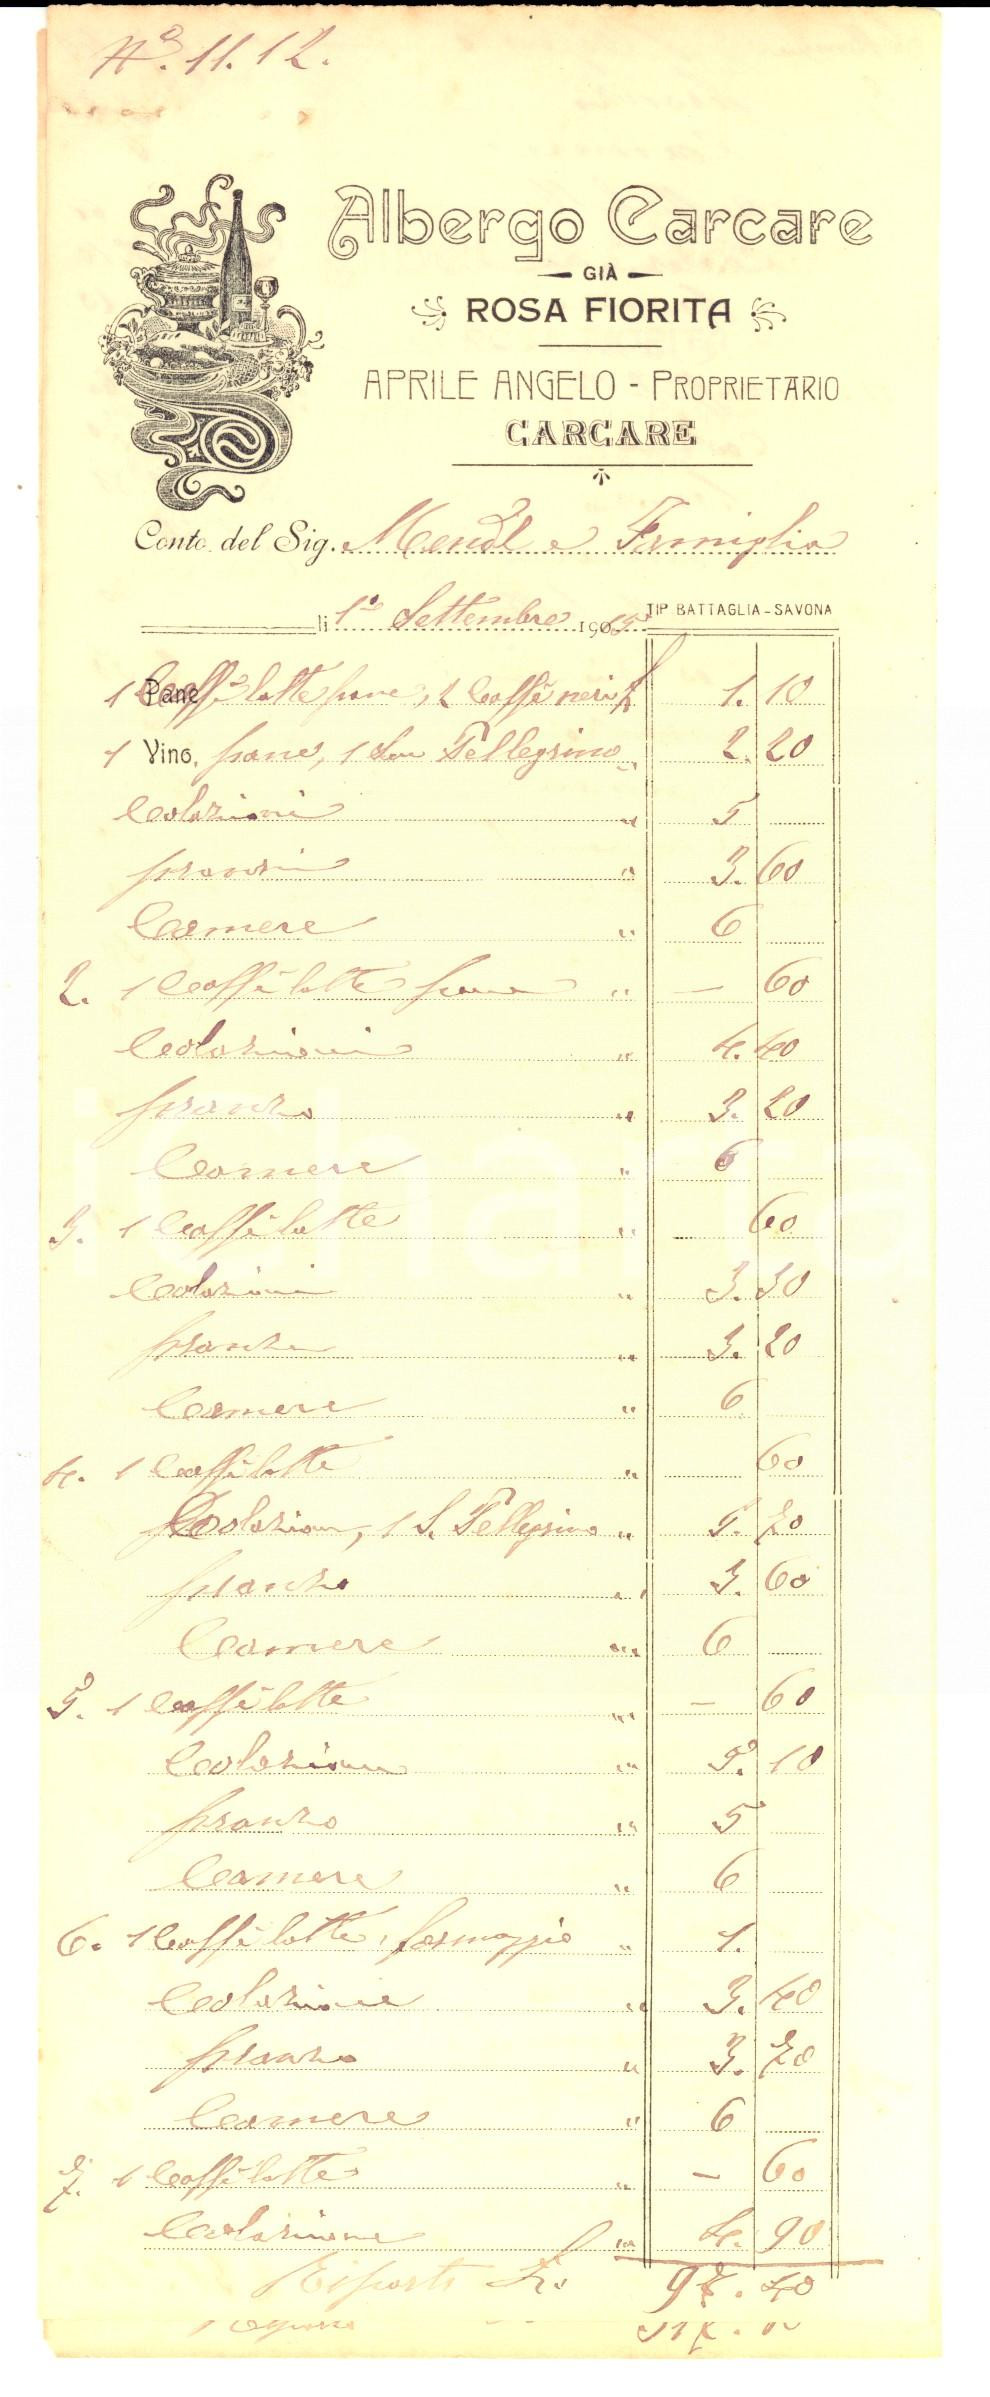 Nº. 11. 12.
Albergo Carcare
GIÀ
ROSA FIORITA
APRILE ANGELO - PROPRIETARIO
CARCARE
Conto del Sig. e Famiglia
TIP. BATTAGLIA - SAVONA
li 1º Settembre 190
1 Caffè latte pane, 2 Caffè neri 1. 10
1 Vino, pane, 1 San Pellegrino " 2. 20
Colazioni " 5
pranzi " 3. 60
Camere " 6
2. 1 Caffè latte pane " — 60
Colazioni " 4. 40
pranzo " 3. 20
Camere " 6
3. 1 Caffè latte " 60
Colazioni " 3. 30
pranzo " 3. 20
Camere " 6
4. 1 Caffè latte " 60
Colazione, 1 S. Pellegrino " 5. 70
pranzo " 3. 60
Camere " 6
5. 1 Caffè latte " — 60
Colazione " 5. 10
pranzo " 5
Camere " 6
6. 1 Caffè latte, formaggio " 1.
Colazione " 3. 40
pranzo " 3. 70
Camere " 6
7. 1 Caffè latte " — 60
Colazione " 4. 90
Riporto 97. 40